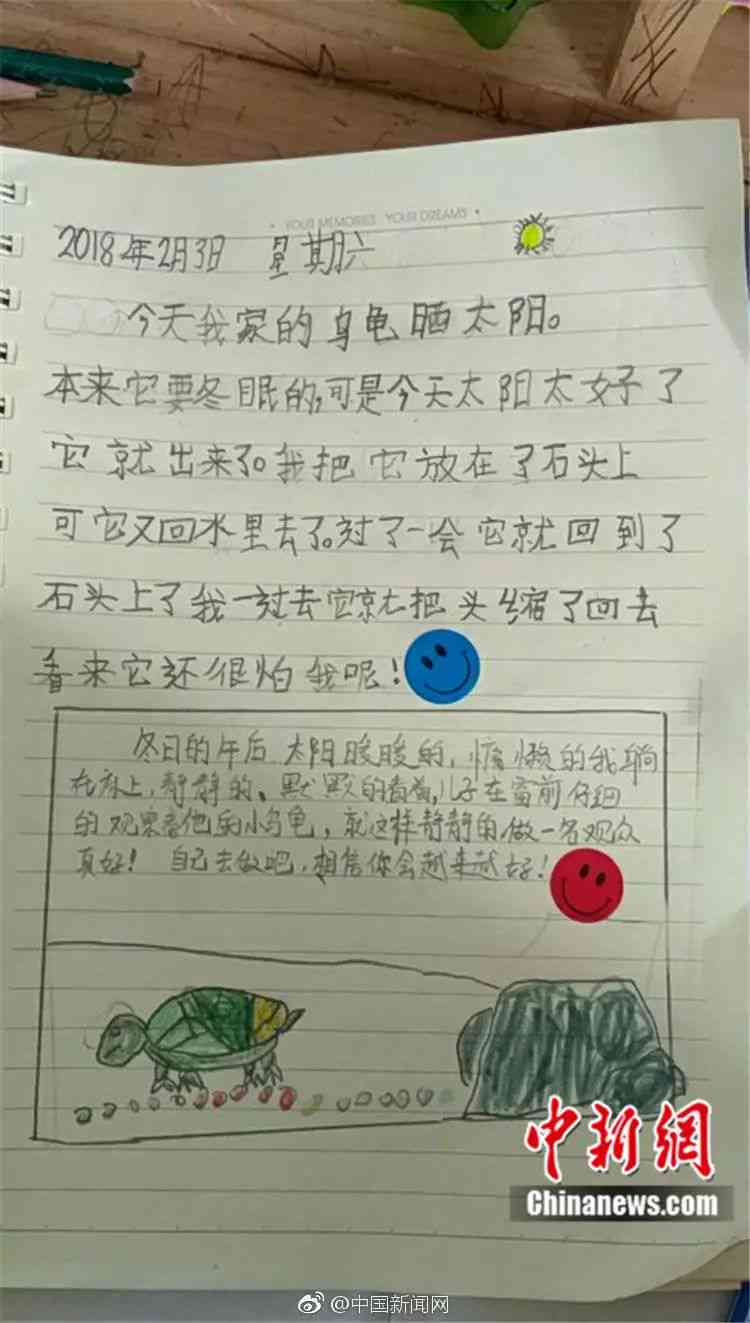 YOUR MEMORIES YOUR DREAMS
2018年2月3日 星期六
今天我家的乌龟晒太阳。
本来它要冬眠的,可是今天太阳太好了
它就出来了。我把它放在了石头上
可它又回水里去了。过了一会它就回到了
石头上了我一过去它就把头缩了回去
看来它还很怕我呢!
冬日的午后太阳暖暖的,慵懒的我躺
在床上,静静的、默默的看着,儿子在窗前仔细
的观察着他的小乌龟,就这样静静的,做一名观众
真好! 自己去做吧,相信你会越来越好!
中新網
Chinanews.com
@中国新闻网